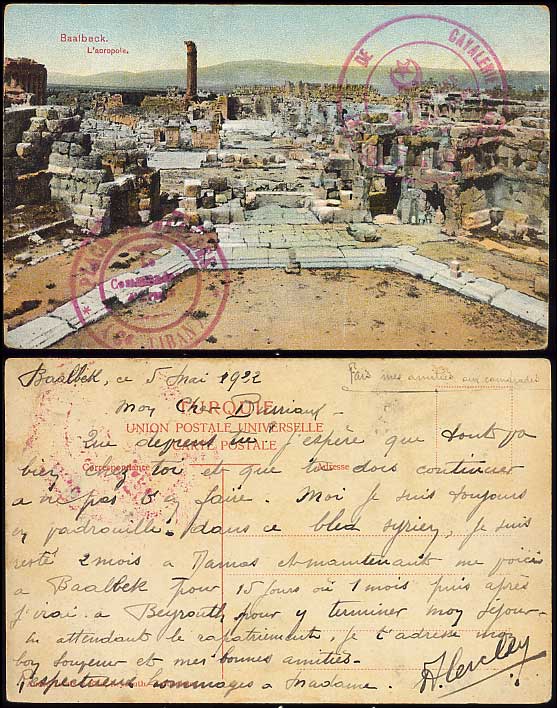 Baalbeck.
L'acropole.
DE CAVALERIE
PLACE
GRAND LIBAN
Baalbek, ce 5 Mai 1922
Fais mes amitiés aux camarades
Mon Cher
TURQUIE
UNION POSTALE UNIVERSELLE
CARTE POSTALE
Correspondance
Adresse
Que deviens tu j'espère que tout va
bien chez toi et que tu dois continuer
a ne pas t'y faire. Moi je suis toujours
en patrouille dans ce bled syrien, je suis
resté 2 mois a et maintenant me voici
a Baalbek pour 15 jours où 1 mois puis après
j'irai a Beyrouth pour y terminer mon sejour
en attendant le rapatriement, je t'adresse mon
bon souvenir et mes bonnes amitiés-
Respectueux hommages a Madame.